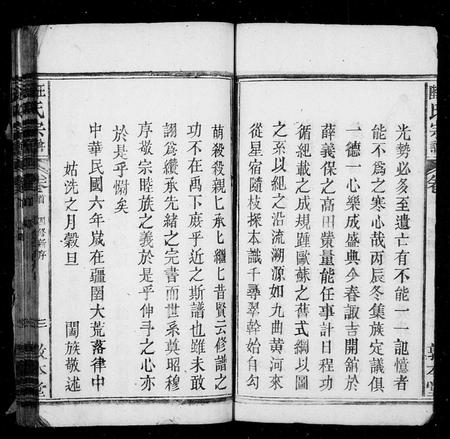 光勢必多至遺亡有不能一一記憶者
能不為之寒心哉丙辰冬集族定議俱
一德一心樂成盛典今春諏吉開館於
薛義保之高田責量能任事計日程功
循紀載之成規踵歐蘇之舊式綱以圖
之系以紀之沿流溯源如九曲黃河來
從星宿隨枝探本識千尋翠幹始自勾
萌殺殺親匕承匕繼匕昔賢云修譜之
功不在禹下庶乎近之斯譜也雖未敢
詡為纘承先緒之完書而世系奠昭穆
序敬宗睦族之義於是乎伸予之心亦
於是乎慰矣
中華民國六年歲在疆圉大荒落律中
姑洗之月穀旦
闔族敬述
氏宗譜
卷首
三
敦本堂